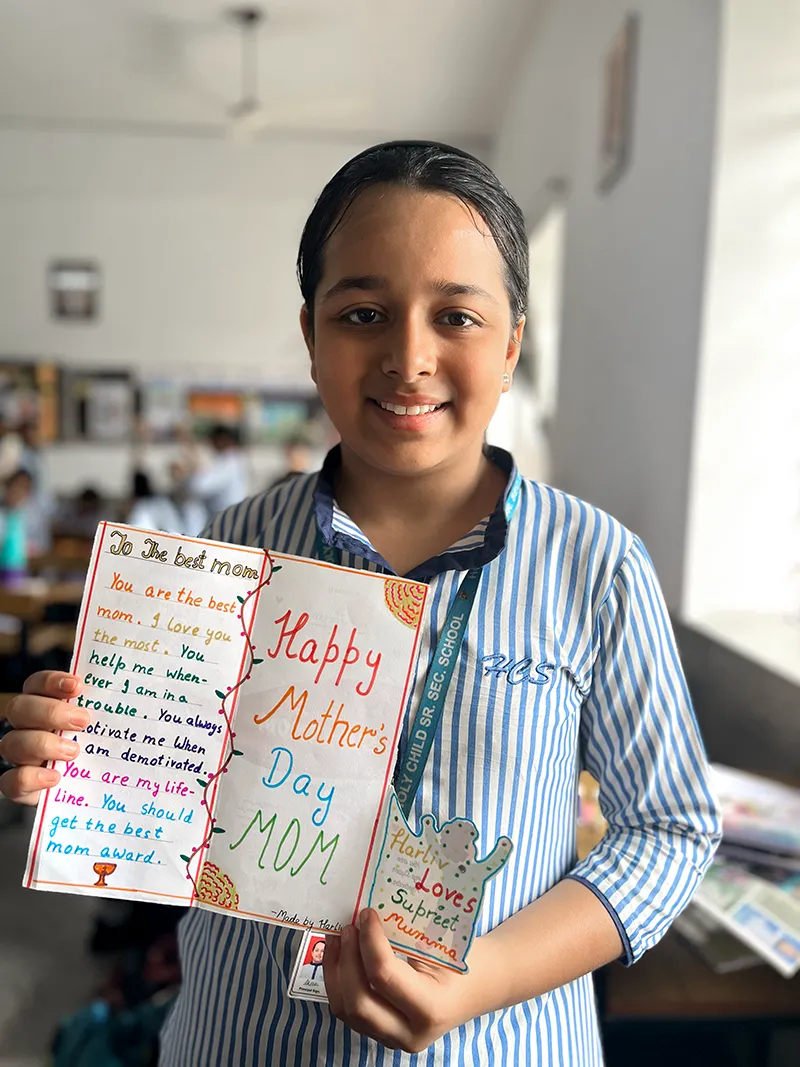 To The best mom
You are the best
mom. I love you
the most. You
help me when-
ever I am in a
trouble. You always
motivate me When
I am demotivated.
You are my life-
line. You should
get the best
mom award.
Happy
Mother's
Day
MOM
~Made by Harliv
Harliv
Loves
Supreet
Mumma
HCS
OLY CHILD SR. SEC. SCHOOL
Principal Sign.